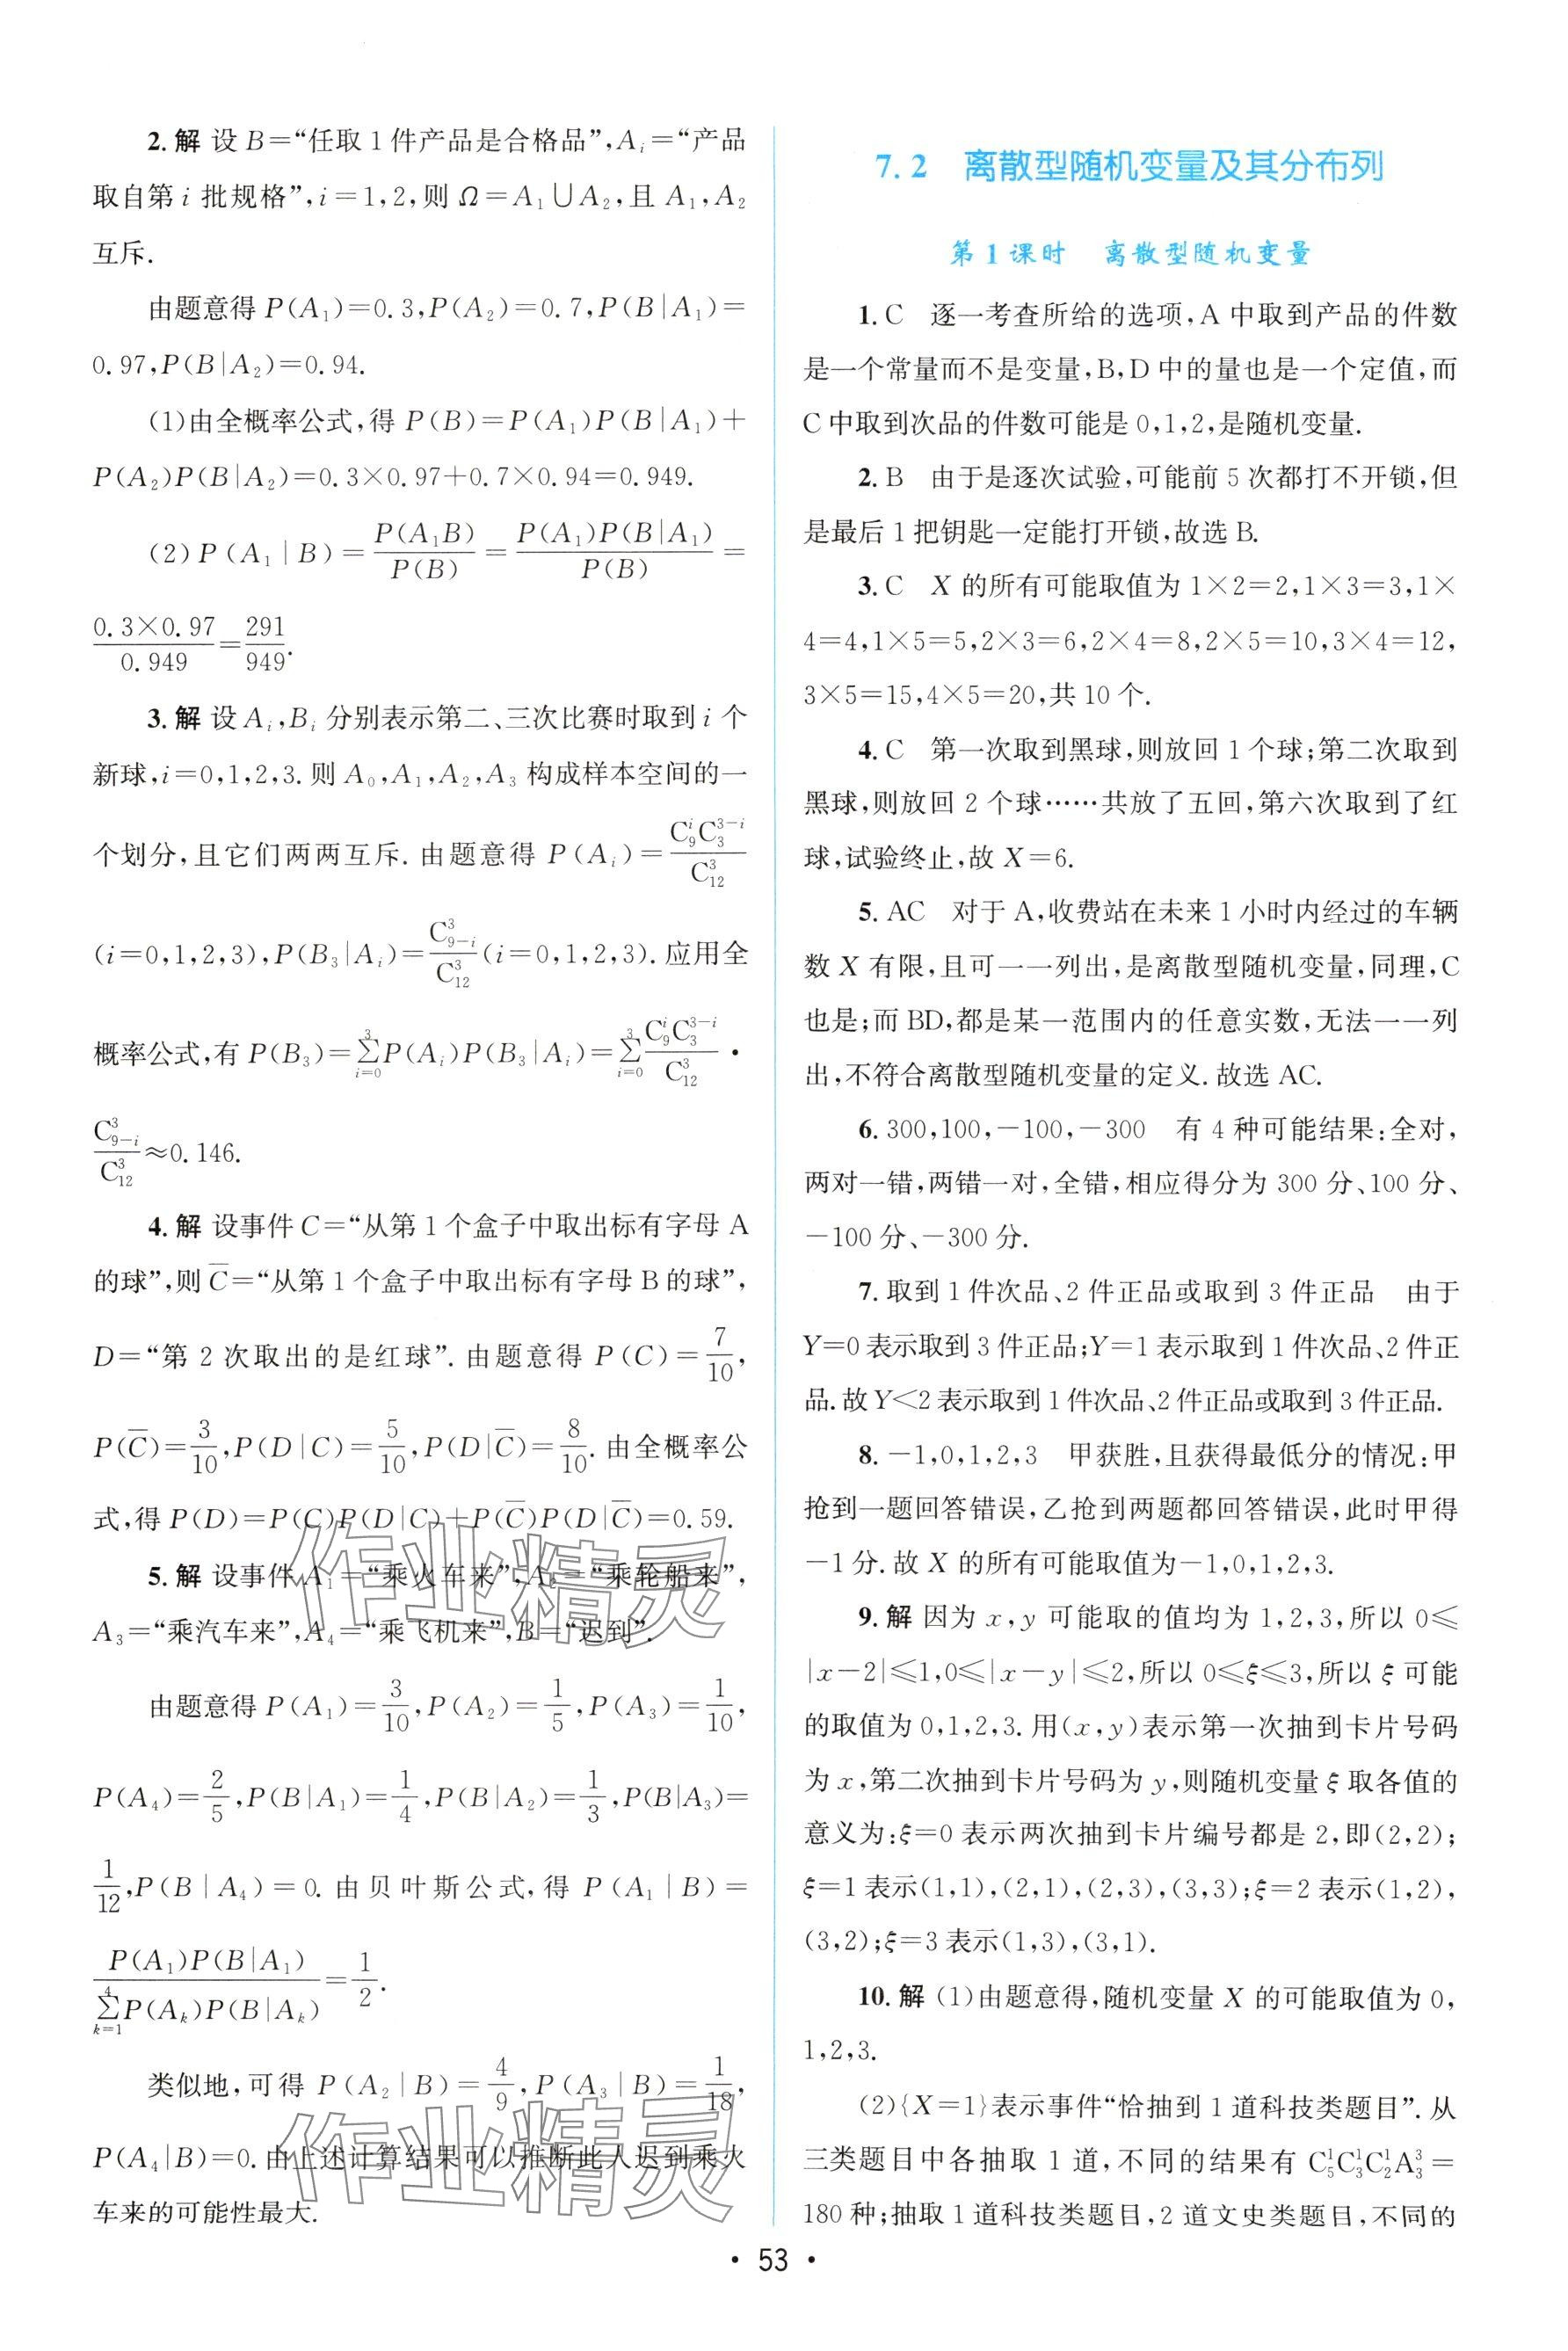 2. 解 设 B=“任取 1 件产品是合格品”,Aᵢ=“产品
取自第 i 批规格”,i=1,2,则 Ω=A₁∪A₂,且 A₁,A₂
互斥.
由题意得 P(A₁)=0.3,P(A₂)=0.7,P(B|A₁)=
0.97,P(B|A₂)=0.94.
(1)由全概率公式,得 P(B)=P(A₁)P(B|A₁)+
P(A₂)P(B|A₂)=0.3×0.97+0.7×0.94=0.949.
(2)P(A₁|B)=\frac{P(A₁B)}{P(B)}=\frac{P(A₁)P(B|A₁)}{P(B)}=
\frac{0.3×0.97}{0.949}=\frac{291}{949}.
3. 解 设 Aᵢ,Bᵢ 分别表示第二、三次比赛时取到 i 个
新球,i=0,1,2,3. 则 A₀,A₁,A₂,A₃ 构成样本空间的一
个划分,且它们两两互斥. 由题意得 P(Aᵢ)=\frac{C_9^i C_3^{3-i}}{C_{12}^3}
(i=0,1,2,3),P(B₃|Aᵢ)=\frac{C_{9-i}^3}{C_{12}^3}(i=0,1,2,3). 应用全
概率公式,有 P(B₃)=\sum_{i=0}^{3}P(Aᵢ)P(B₃|Aᵢ)=\sum_{i=0}^{3}\frac{C_9^i C_3^{3-i}}{C_{12}^3}·
\frac{C_{9-i}^3}{C_{12}^3}≈0.146.
4. 解 设事件 C=“从第 1 个盒子中取出标有字母 A
的球”,则 \overline{C}=“从第 1 个盒子中取出标有字母 B 的球”,
D=“第 2 次取出的是红球”. 由题意得 P(C)=\frac{7}{10},
P(\overline{C})=\frac{3}{10},P(D|C)=\frac{5}{10},P(D|\overline{C})=\frac{8}{10}. 由全概率公
式,得 P(D)=P(C)P(D|C)+P(\overline{C})P(D|\overline{C})=0.59.
5. 解 设事件 A₁=“乘火车来”,A₂=“乘轮船来”,
A₃=“乘汽车来”,A₄=“乘飞机来”,B=“迟到”.
由题意得 P(A₁)=\frac{3}{10},P(A₂)=\frac{1}{5},P(A₃)=\frac{1}{10},
P(A₄)=\frac{2}{5},P(B|A₁)=\frac{1}{4},P(B|A₂)=\frac{1}{3},P(B|A₃)=
\frac{1}{12},P(B|A₄)=0. 由贝叶斯公式,得 P(A₁|B)=
\frac{P(A₁)P(B|A₁)}{\sum_{k=1}^{4}P(A_k)P(B|A_k)}=\frac{1}{2}.
类似地,可得 P(A₂|B)=\frac{4}{9},P(A₃|B)=\frac{1}{18},
P(A₄|B)=0. 由上述计算结果可以推断此人迟到乘火
车来的可能性最大.
7.2 离散型随机变量及其分布列
第 1 课时 离散型随机变量
1. C 逐一考查所给的选项,A 中取到产品的件数
是一个常量而不是变量,B,D 中的量也是一个定值,而
C 中取到次品的件数可能是 0,1,2,是随机变量.
2. B 由于是逐次试验,可能前 5 次都打不开锁,但
是最后 1 把钥匙一定能打开锁,故选 B.
3. C X 的所有可能取值为 1×2=2,1×3=3,1×
4=4,1×5=5,2×3=6,2×4=8,2×5=10,3×4=12,
3×5=15,4×5=20,共 10 个.
4. C 第一次取到黑球,则放回 1 个球;第二次取到
黑球,则放回 2 个球……共放了五回,第六次取到了红
球,试验终止,故 X=6.
5. AC 对于 A,收费站在未来 1 小时内经过的车辆
数 X 有限,且可一一列出,是离散型随机变量,同理,C
也是;而 BD,都是某一范围内的任意实数,无法一一列
出,不符合离散型随机变量的定义. 故选 AC.
6. 300,100,-100,-300 有 4 种可能结果:全对,
两对一错,两错一对,全错,相应得分为 300 分、100 分、
-100 分、-300 分.
7. 取到 1 件次品、2 件正品或取到 3 件正品 由于
Y=0 表示取到 3 件正品;Y=1 表示取到 1 件次品、2 件正
品. 故 Y<2 表示取到 1 件次品、2 件正品或取到 3 件正品.
8. -1,0,1,2,3 甲获胜,且获得最低分的情况:甲
抢到一题回答错误,乙抢到两题都回答错误,此时甲得
-1 分. 故 X 的所有可能取值为-1,0,1,2,3.
9. 解 因为 x,y 可能取的值均为 1,2,3,所以 0≤
|x-2|≤1,0≤|x-y|≤2,所以 0≤ξ≤3,所以 ξ 可能
的取值为 0,1,2,3. 用(x,y)表示第一次抽到卡片号码
为 x,第二次抽到卡片号码为 y,则随机变量 ξ 取各值的
意义为:ξ=0 表示两次抽到卡片编号都是 2,即(2,2);
ξ=1 表示(1,1),(2,1),(2,3),(3,3);ξ=2 表示(1,2),
(3,2);ξ=3 表示(1,3),(3,1).
10. 解 (1)由题意得,随机变量 X 的可能取值为 0,
1,2,3.
(2){X=1}表示事件“恰抽到 1 道科技类题目”. 从
三类题目中各抽取 1 道,不同的结果有 C_5^1C_3^1C_2^1A_3^3=
180 种;抽取 1 道科技类题目,2 道文史类题目,不同的
作业精灵
作业精灵
· 53 ·